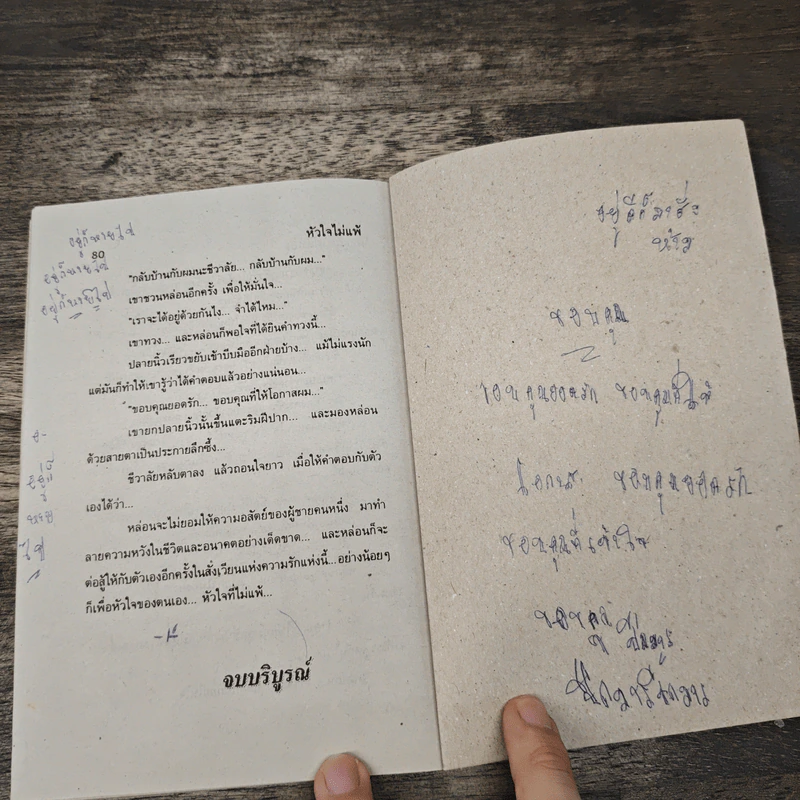 หัวใจไม่แพ้
80
"กลับบ้านกับผมนะชีวาลัย... กลับบ้านกับผม..."
เขาชวนหล่อนอีกครั้ง เพื่อให้มั่นใจ...
"เราจะได้อยู่ด้วยกันไง... จำได้ไหม..."
เขาทวง... และหล่อนก็พอใจที่ได้ยินคำทวงนี้...
ปลายนิ้วเรียวขยับเข้าบีบมืออีกฝ่ายบ้าง... แม้ไม่แรงนัก
แต่มันก็ทำให้เขารู้ว่าได้คำตอบแล้วอย่างแน่นอน...
"ขอบคุณยอดรัก... ขอบคุณที่ให้โอกาสผม..."
เขายกปลายนิ้วนั้นขึ้นแตะริมฝีปาก... และมองหล่อน
ด้วยสายตาเป็นประกายลึกซึ้ง...
ชีวาลัยหลับตาลง แล้วถอนใจยาว เมื่อให้คำตอบกับตัว
เองได้ว่า...
หล่อนจะไม่ยอมให้ความอสัตย์ของผู้ชายคนหนึ่ง มาทำ
ลายความหวังในชีวิตและอนาคตอย่างเด็ดขาด... และหล่อนก็จะ
ต่อสู้ให้กับตัวเองอีกครั้งในสังเวียนแห่งความรักแห่งนี้...อย่างน้อยๆ
ก็เพื่อหัวใจของตนเอง... หัวใจที่ไม่แพ้...
จบบริบูรณ์
ขอบคุณ
ขอบคุณยอดรัก ขอบคุณที่ให้
โอกาส ขอบคุณยอดรัก
ขอบคุณที่เข้าใจ
ขอบคุณ